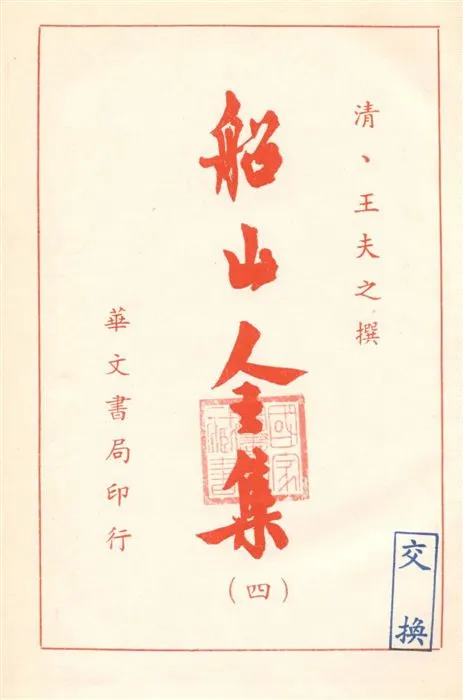 清、王夫之撰
船山全集
（四）
華文書局印行
交換